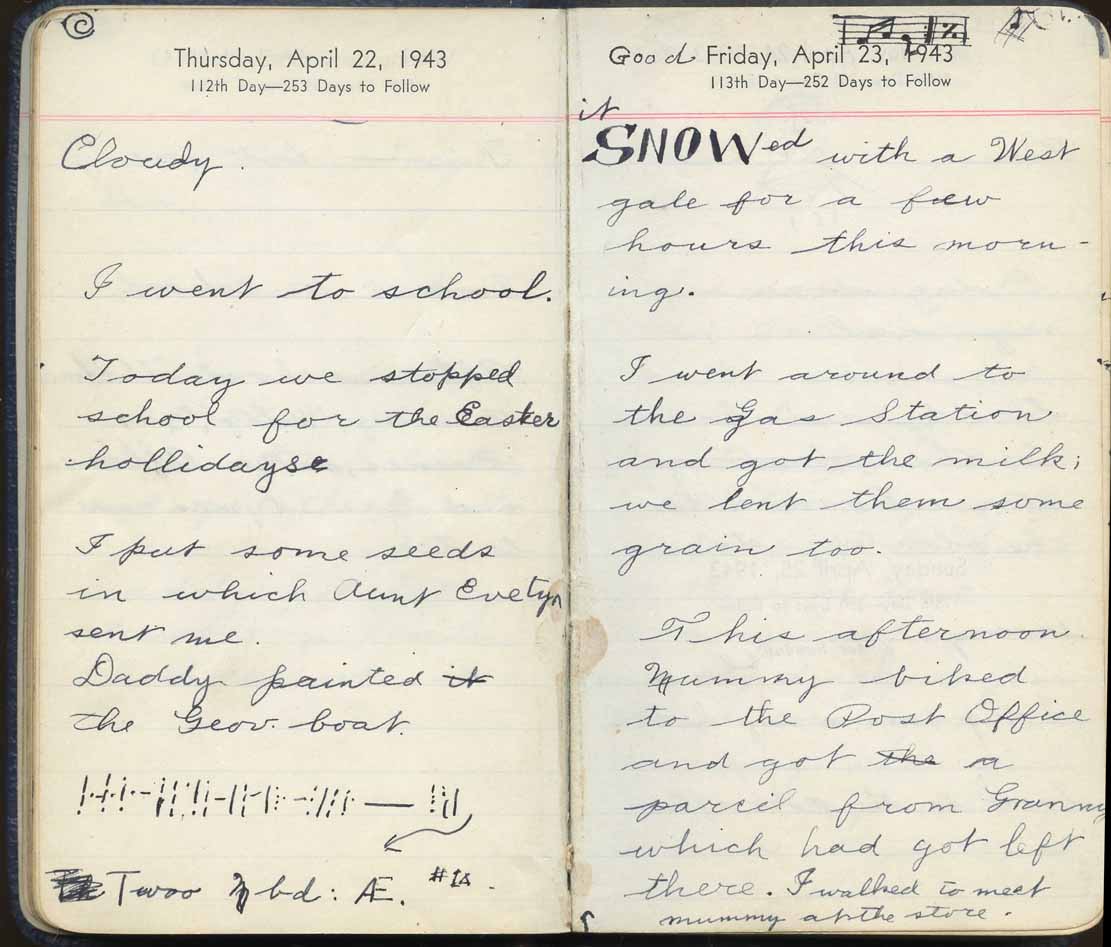 Thursday, April 22, 1943
112th Day—253 Days to Follow
Cloudy.
I went to school.
Today we stopped
school for the Easter
hollidayse
I put some seeds
in which Aunt Evelyn
sent me.
Daddy painted it
the Geov. boat.
Twoo bd: Æ. #18.
Good Friday, April 23, 1943
113th Day—252 Days to Follow
it
SNOWed with a West
gale for a few
hours this morn-
ing.
I went around to
the Gas Station
and got the milk;
we lent them some
grain too.
This afternoon
Mummy biked
to the Post Office
and got the a
parcil from Granny
which had got left
there. I walked to meet
mummy at the store.